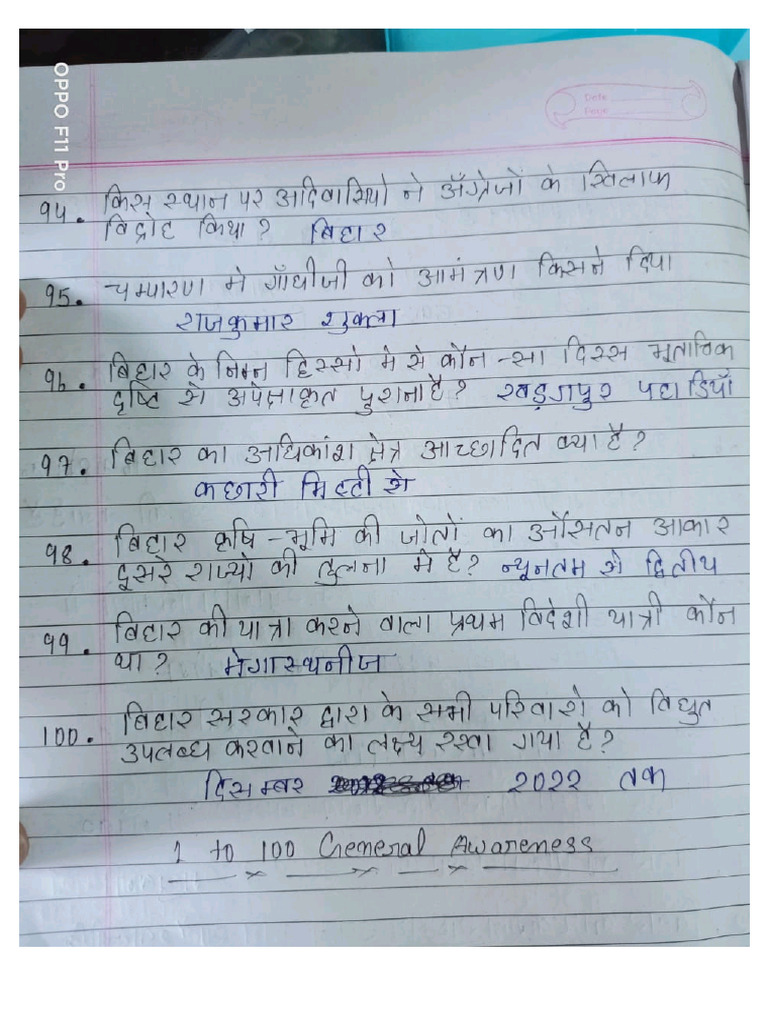 OPPO F11 Pro
Date
Page
94. किस स्थान पर आदिवासियो ने अँग्रेजों के खिलाफ
विद्रोह किया? बिहार
95. चम्पारण मे गाँधीजी को आमंत्रण किसने दिया
राजकुमार शुक्ला
96. बिहार के निम्न हिस्सो मे से कौन-सा दिस्स भूतात्विक
दृष्टि से अपेक्षाकृत पुराना है? खड़गपुर पहाडियाँ
97. बिहार का अधिकांश क्षेत्र आच्छादित क्या है?
कछारी मिट्टी से
98. बिहार कृषि-भूमि की जोतों का औसतन आकार
दूसरे राज्यो की तुलना मे है? न्यूनतम से द्वितीय
99. बिहार की यात्रा करने वाला प्रथम विदेशी यात्री कौन
था? मेगास्थनीज
100. बिहार सरकार द्वारा के सभी परिवारो को विधुत
उपलब्ध करवाने का लक्ष्य रखा गया है?
दिसम्बर 2022 तक
1 to 100 General Awareness